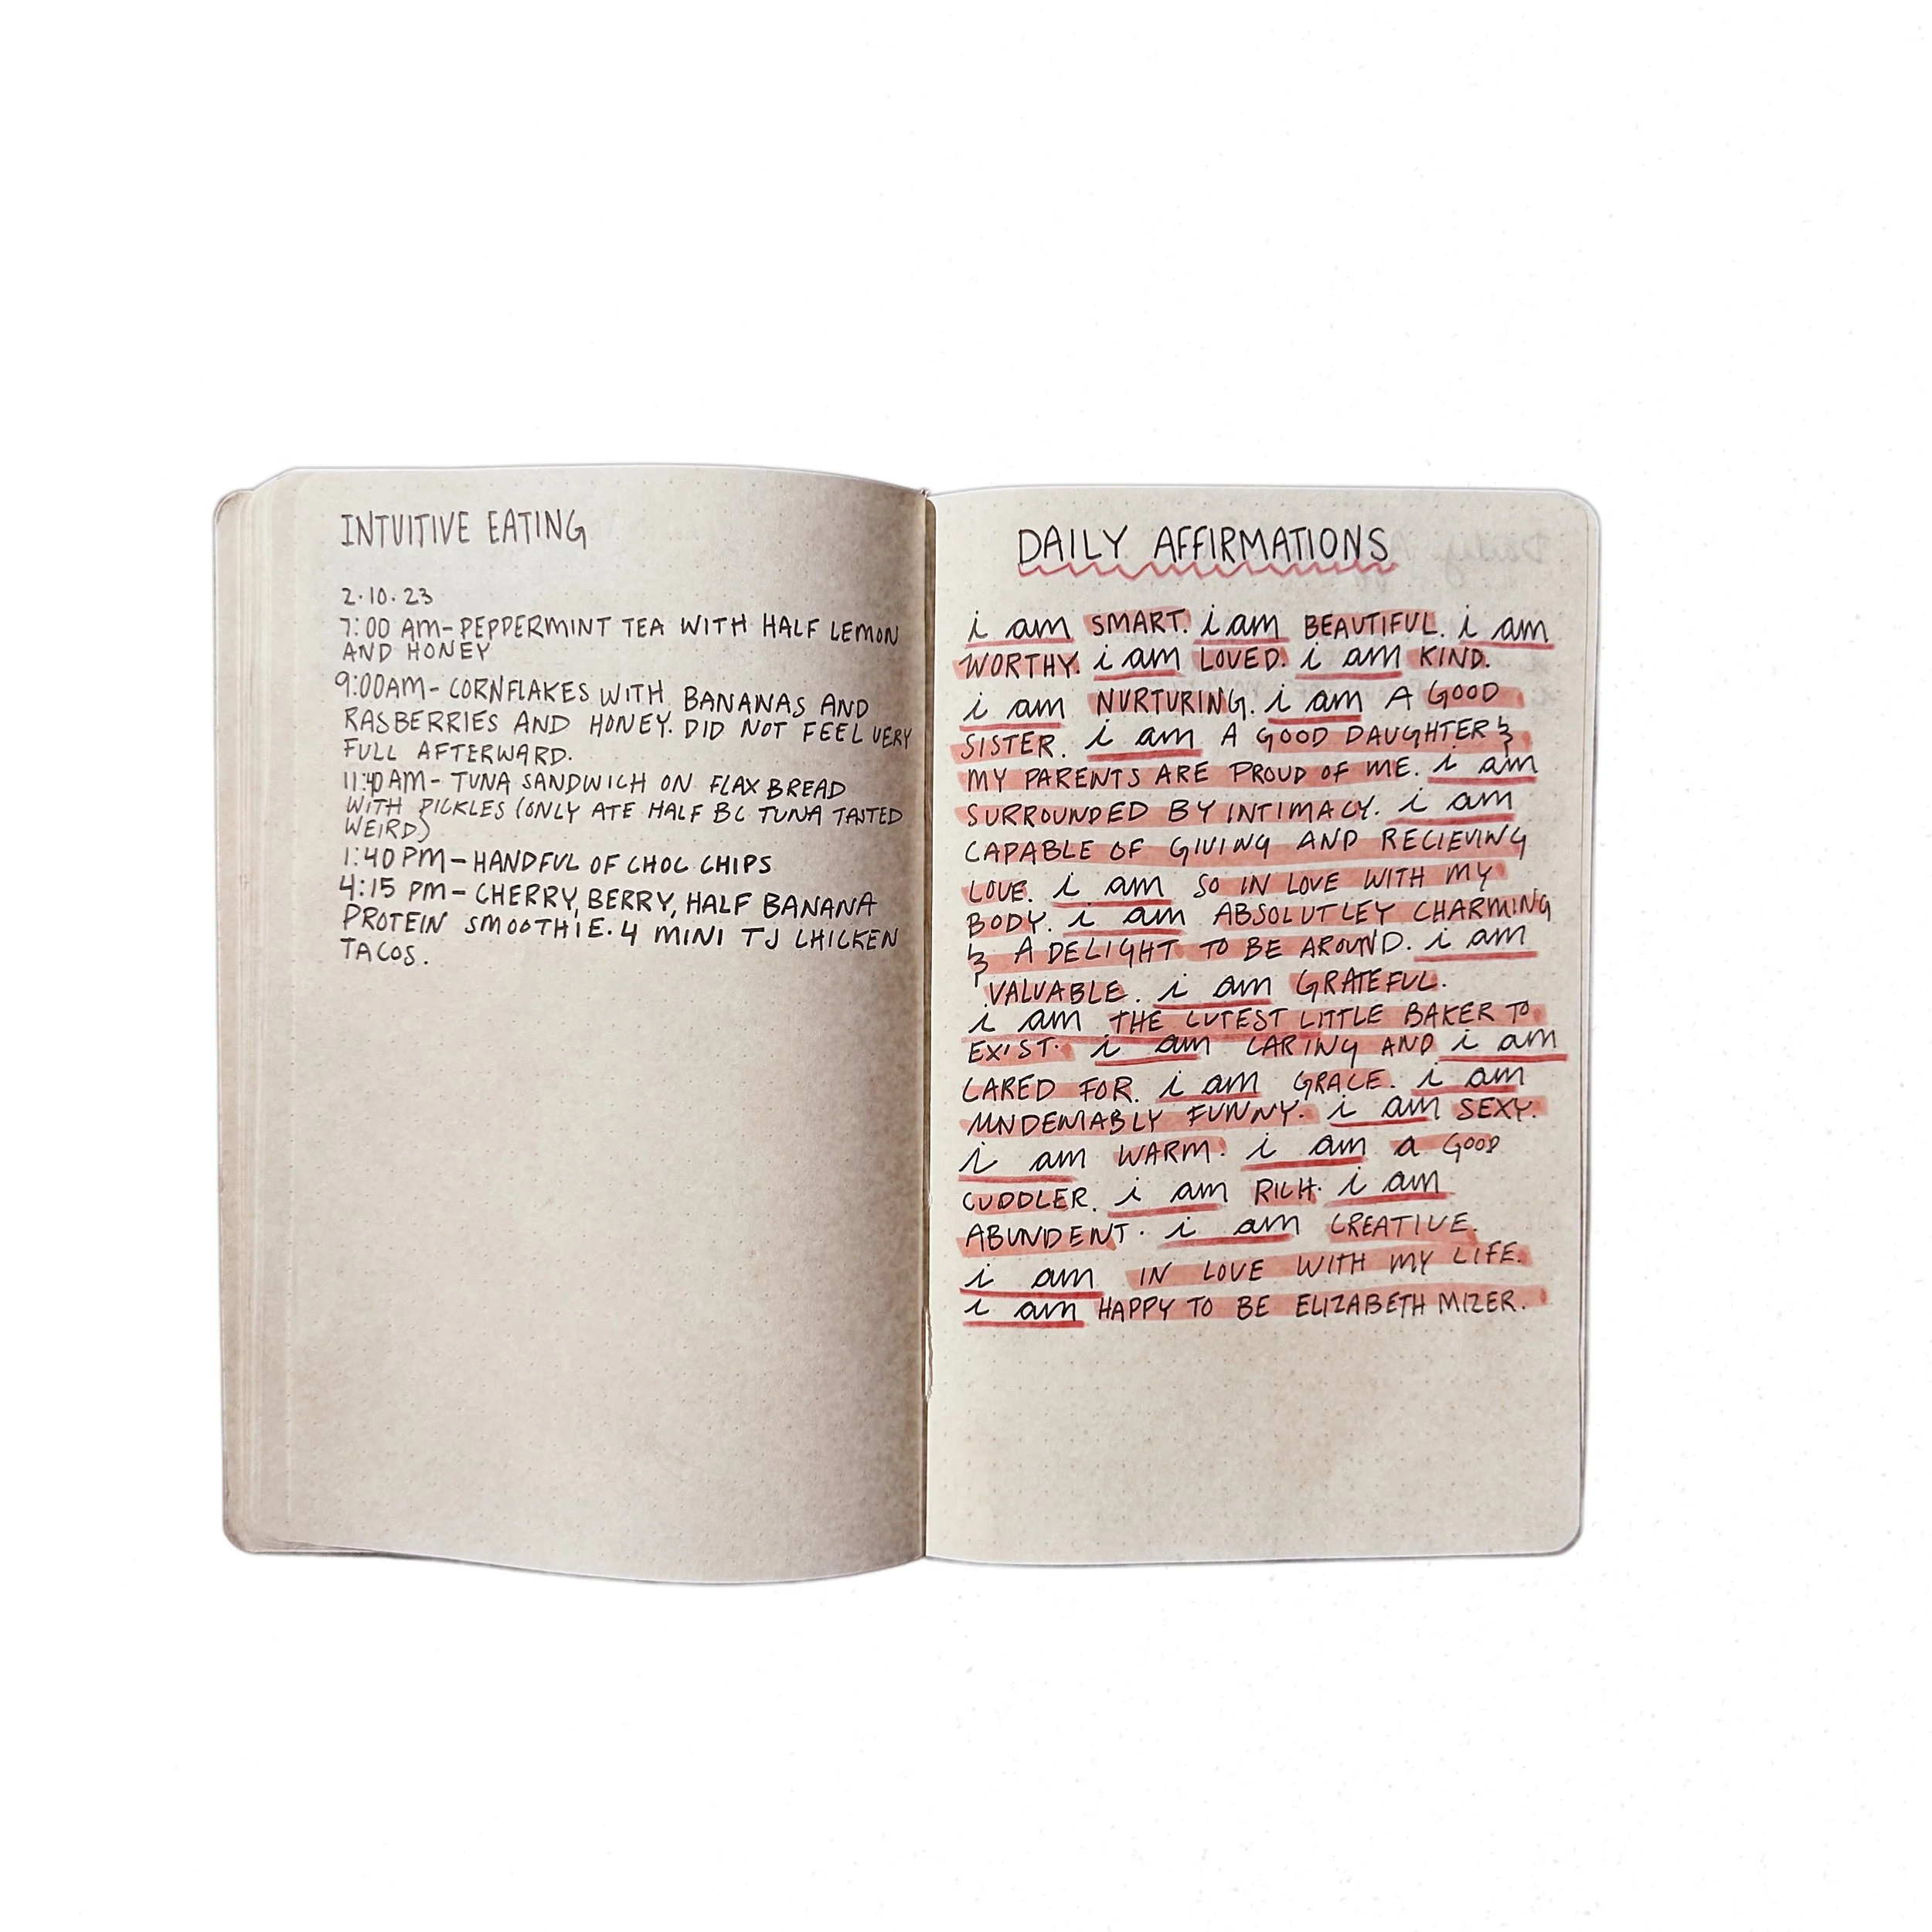 INTUITIVE EATING
2.10.23
7:00 AM- PEPPERMINT TEA WITH HALF LEMON
AND HONEY
9:00AM- CORNFLAKES WITH BANANAS AND
RASBERRIES AND HONEY. DID NOT FEEL VERY
FULL AFTERWARD.
11:40 AM- TUNA SANDWICH ON FLAX BREAD
WITH PICKLES (ONLY ATE HALF BC TUNA TASTED
WEIRD)
1:40 PM- HANDFUL OF CHOC CHIPS
4:15 PM- CHERRY, BERRY, HALF BANANA
PROTEIN SMOOTHIE. 4 MINI TJ CHICKEN
TACOS.
DAILY AFFIRMATIONS
i am SMART. i am BEAUTIFUL. i am
WORTHY. i am LOVED. i am KIND.
i am NURTURING. i am A GOOD
SISTER. i am A GOOD DAUGHTER &
MY PARENTS ARE PROUD OF ME. i am
SURROUNDED BY INTIMACY. i am
CAPABLE OF GIVING AND RECIEVING
LOVE. i am SO IN LOVE WITH MY
BODY. i am ABSOLUTLEY CHARMING
& A DELIGHT TO BE AROUND. i am
VALUABLE. i am GRATEFUL.
i am THE CUTEST LITTLE BAKER TO
EXIST. i am CARING AND i am
CARED FOR. i am GRACE. i am
UNDENIABLY FUNNY. i am SEXY.
i am WARM. i am a GOOD
CUDDLER. i am RICH. i am
ABUNDENT. i am CREATIVE.
i am IN LOVE WITH MY LIFE.
i am HAPPY TO BE ELIZABETH MIZER.